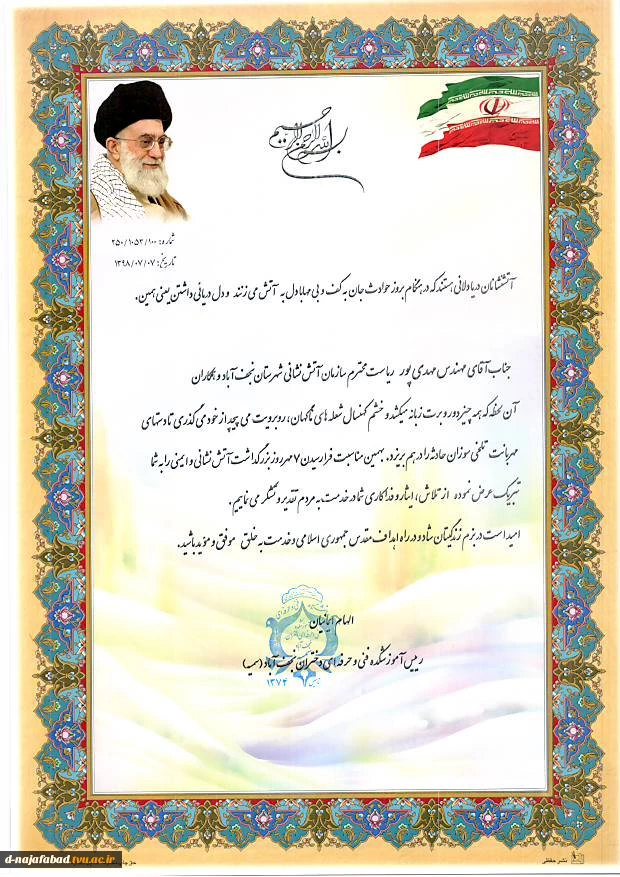 بسم الله الرحمن الرحیم
شماره: ۲۵۰/۱۰۵۳/۱۰۰
تاریخ: ۱۳۹۸/۰۷/۰۷
آتشنشانان دریادلانی هستند که در هنگام بروز حوادث جان به کف و بی مهابا دل به آتش می زنند و دل دریائی داشتن یعنی همین.
جناب آقای مهندس مهدی پور ریاست محترم سازمان آتش نشانی شهرستان نجف آباد و همکاران
آن لحظه که همه چیز دور و برت زبانه میکشد و خشم کهنسال شعله های ناگهان، روبرویت می پیچد از خود می گذری تا دستهای
مهربانت تلخی سوزان حادثه را در هم بریزد. بهمین مناسبت فرارسیدن ۷ مهر روز بزرگداشت آتش نشانی و ایمنی را به شما
تبریک عرض نموده از تلاش، ایثار و فداکاری شما در خدمت به مردم تقدیر و تشکر می نماییم.
امید است در بزم زندگیتان شاد و در راه اهداف مقدس جمهوری اسلامی و خدمت به خلق موفق و مؤید باشید.
الهام ایمانیان
رییس آموزشکده فنی و حرفه ای دختران نجف آباد (سمیه)
۱۳۷۴
d-najafabad.tvu.ac.ir
نشر حقیقی